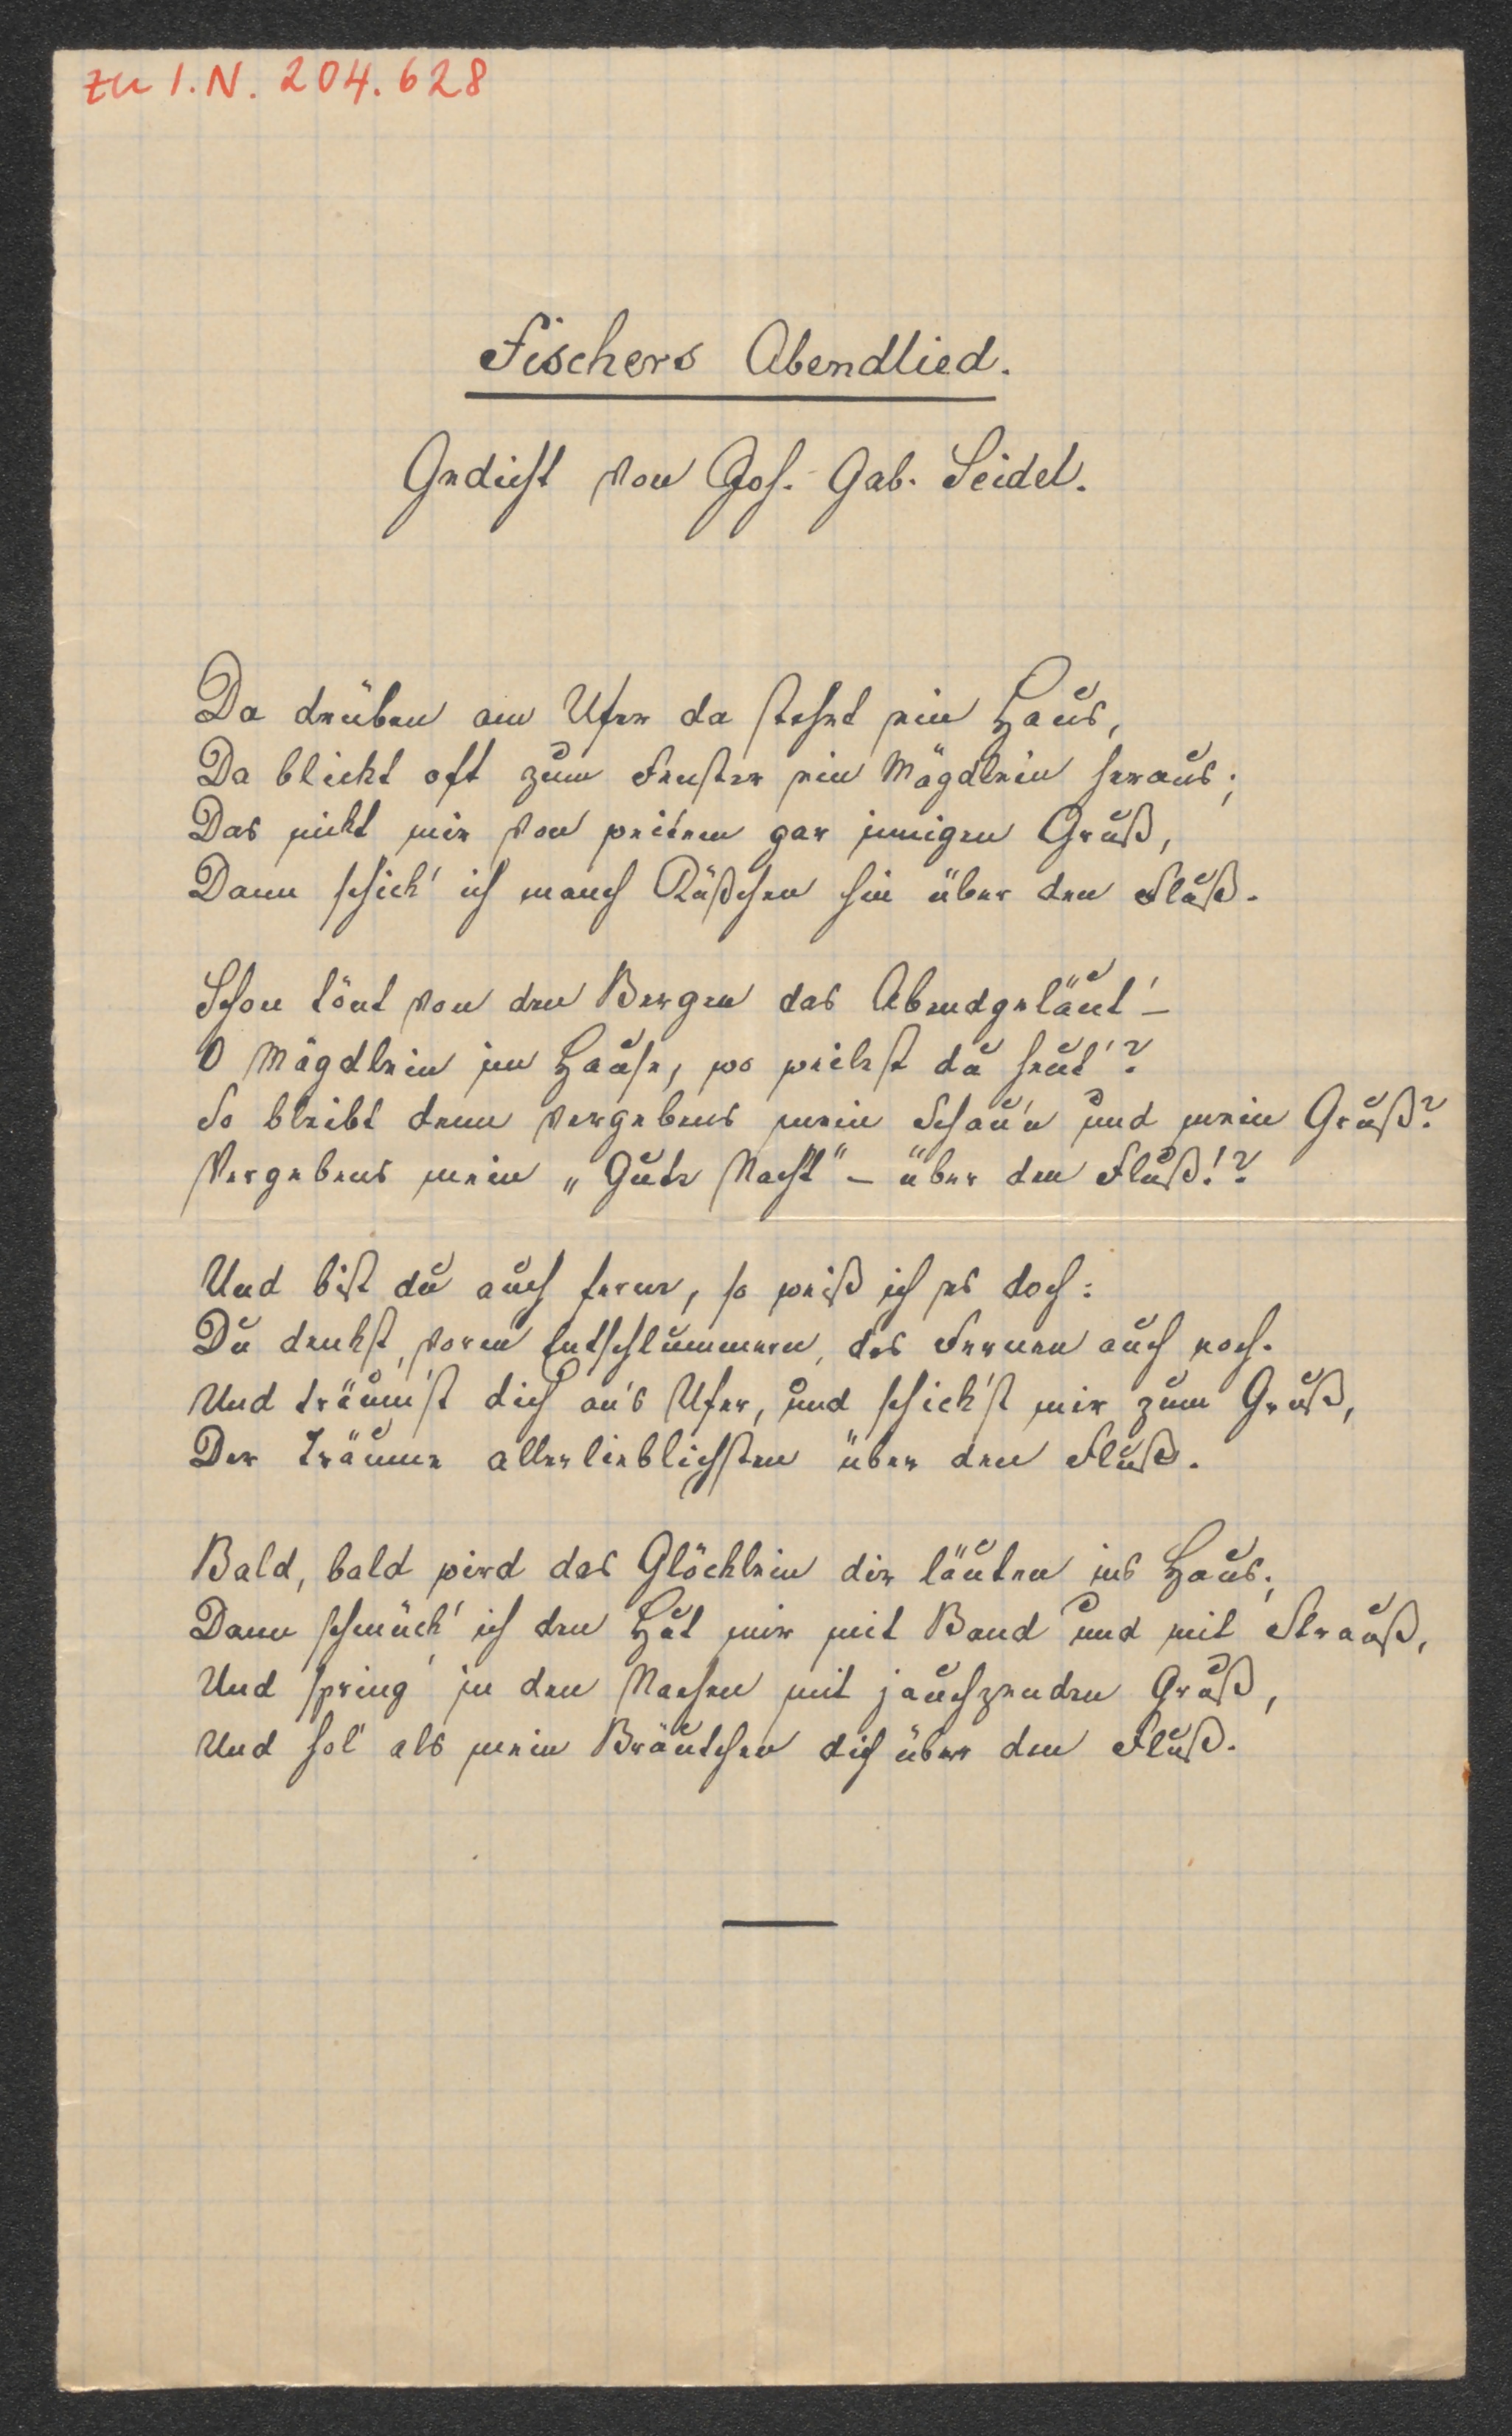 zu I.N. 204.628
Fischers Abendlied.
Gedicht von Joh. Gab. Seidel.
Da drüben am Ufer da stehet ein Haus,
Da blickt oft zum Fenster ein Mägdlein heraus;
Das nickt mir von weitem gar innigen Gruß,
Dann schick' ich manch Küßchen hin über den Fluß.
Schon tönt von den Bergen das Abendgeläut' –
O Mägdlein im Hause, wo weilest du heut'?
So bleibt denn vergebens mein Schau'n und mein Gruß?
Vergebens mein „Gute Nacht" – über den Fluß!?
Und bist du auch ferne, so weiß ich es doch:
Du denkst, vorm Entschlummern, des Fernen auch noch.
Und träum'st dich an's Ufer, und schick'st mir zum Gruß,
Der Träume allerlieblichsten über den Fluß.
Bald, bald wird das Glöcklein dir läuten ins Haus;
Dann schmück' ich den Hut mir mit Band und mit Strauß,
Und spring' in den Nachen mit jauchzenden Gruß,
Und hol' als mein Bräutchen dich über den Fluß.